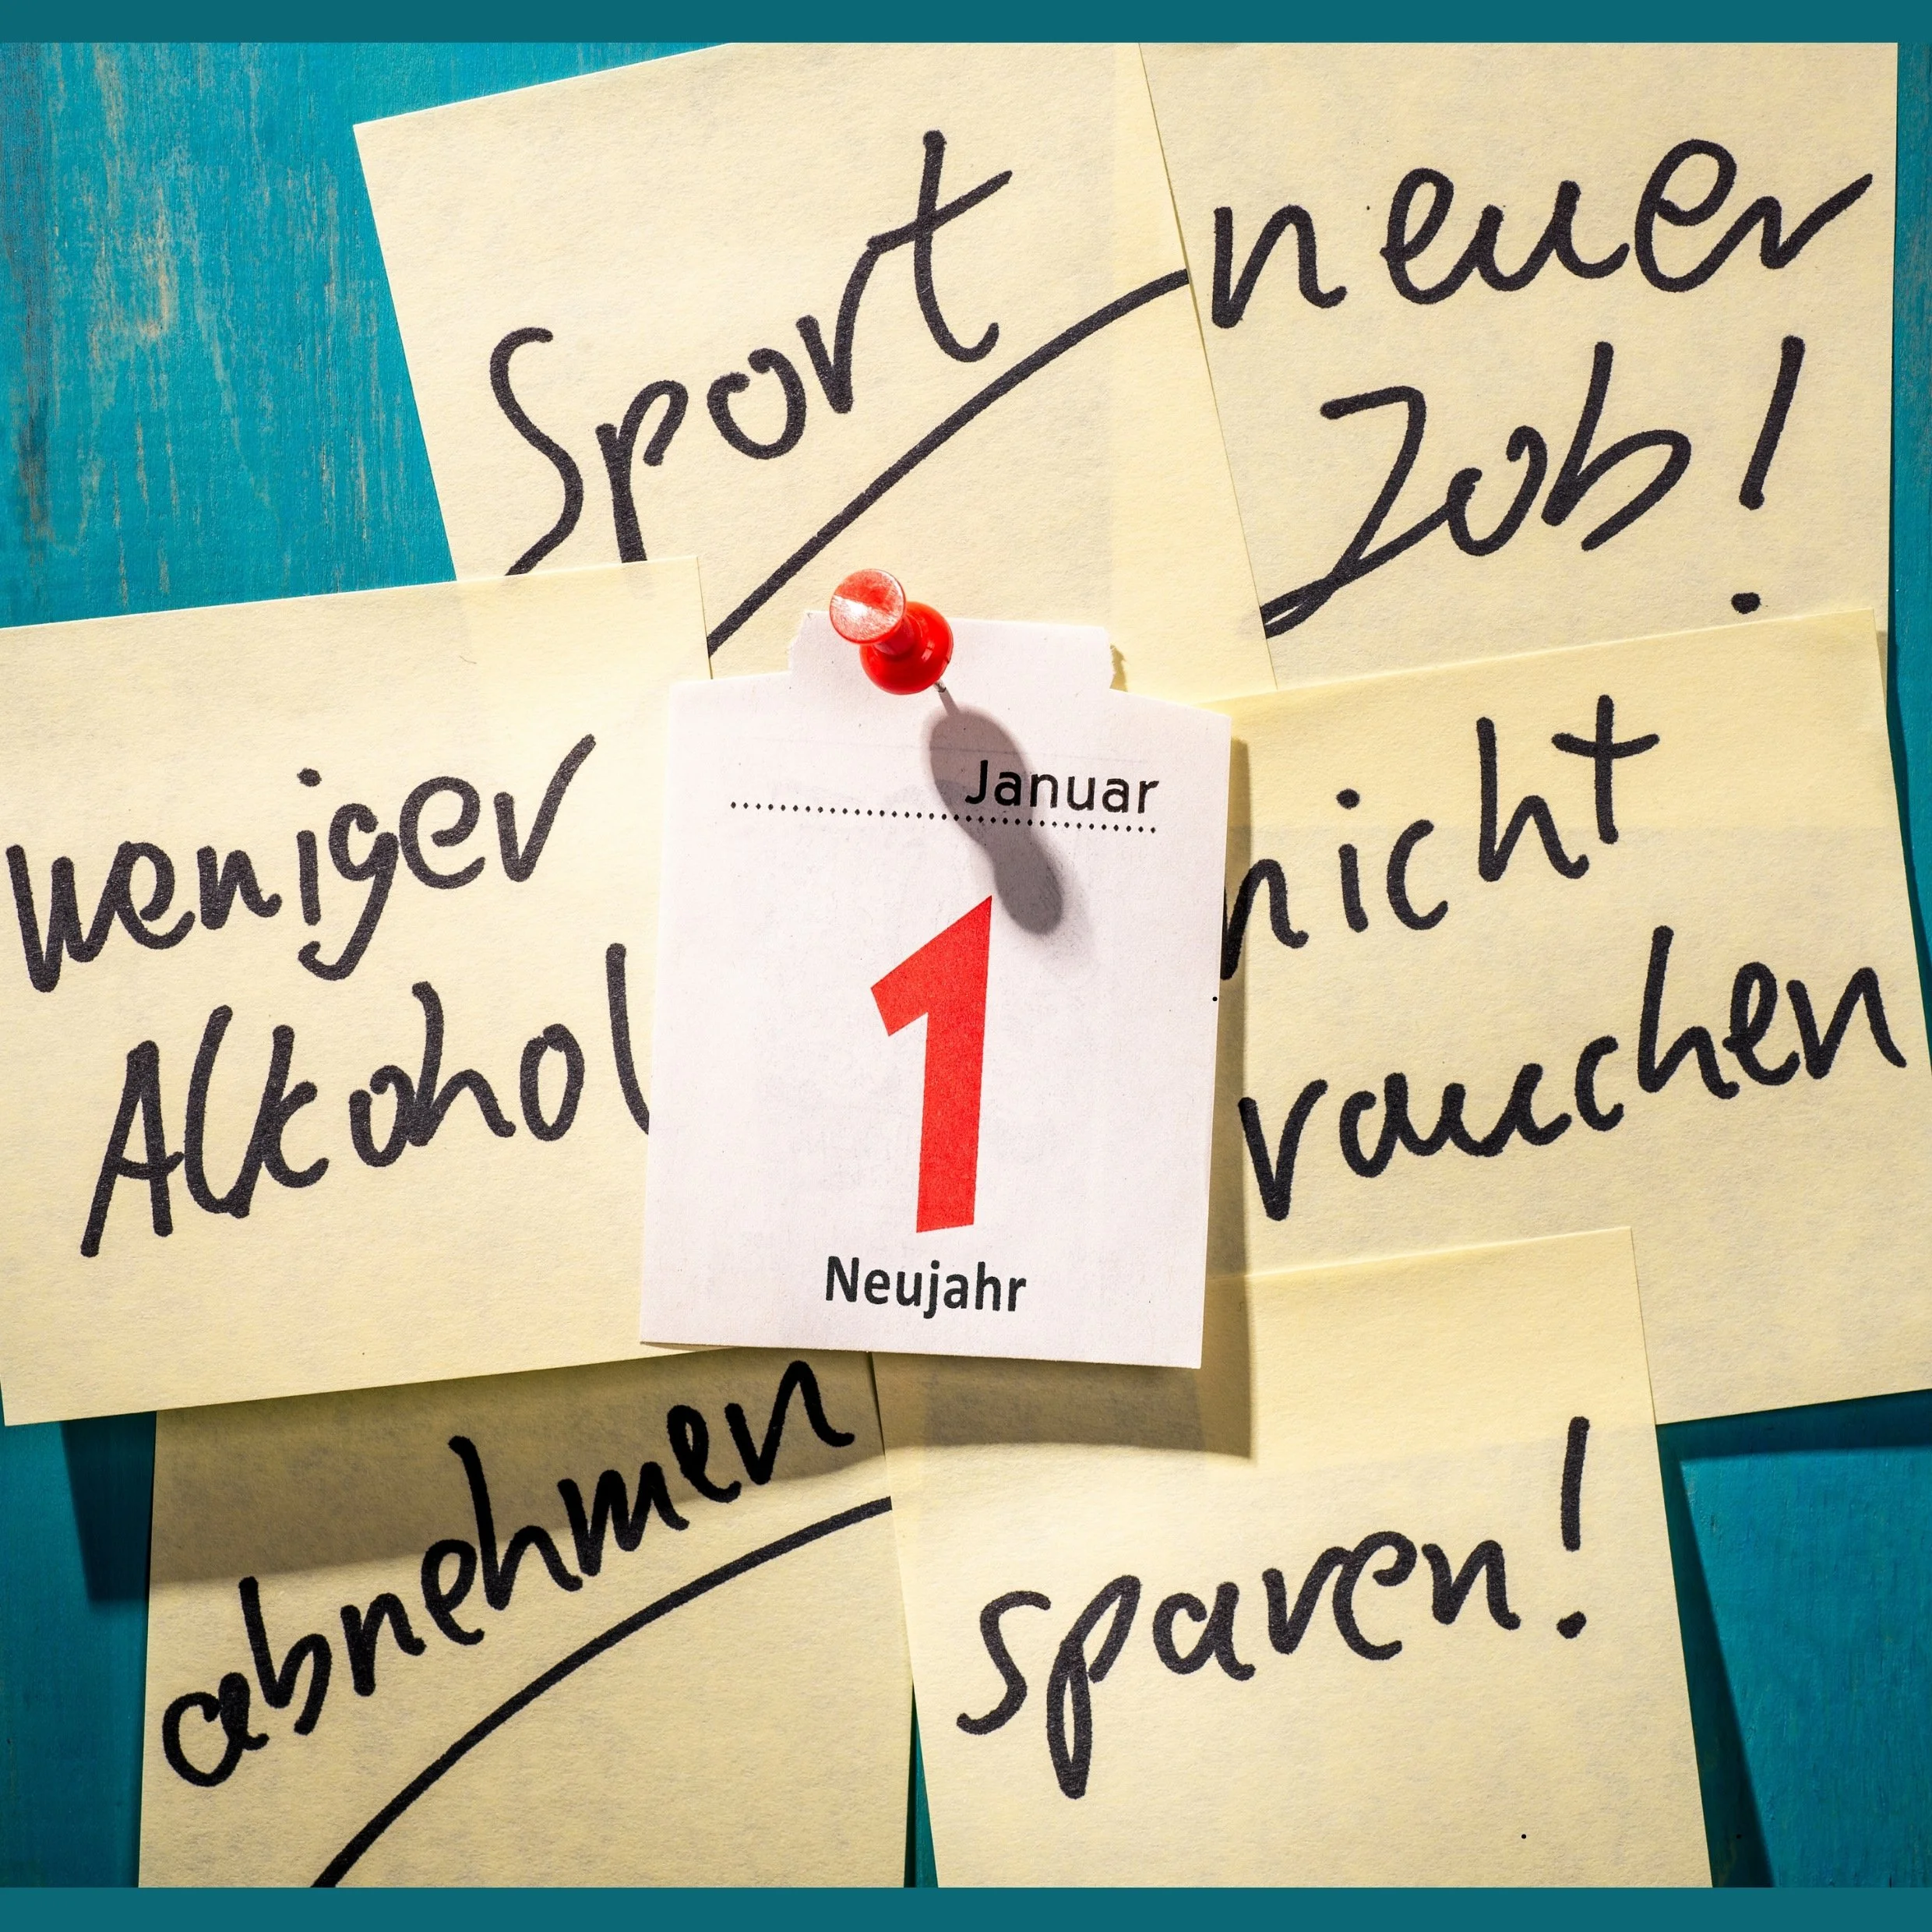 Sport
neuer
Job!
weniger
Alkohol
Januar
1
Neujahr
nicht
rauchen
abnehmen
sparen!